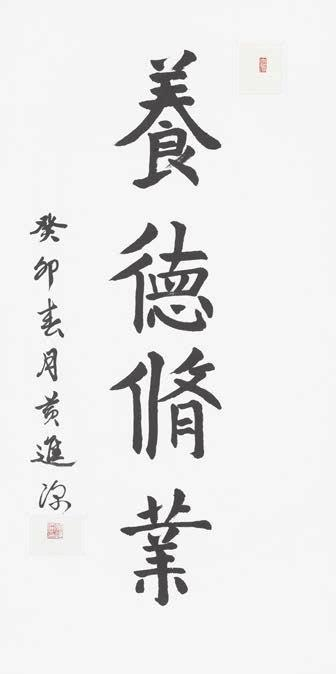 養德脩業
癸卯春月黄進